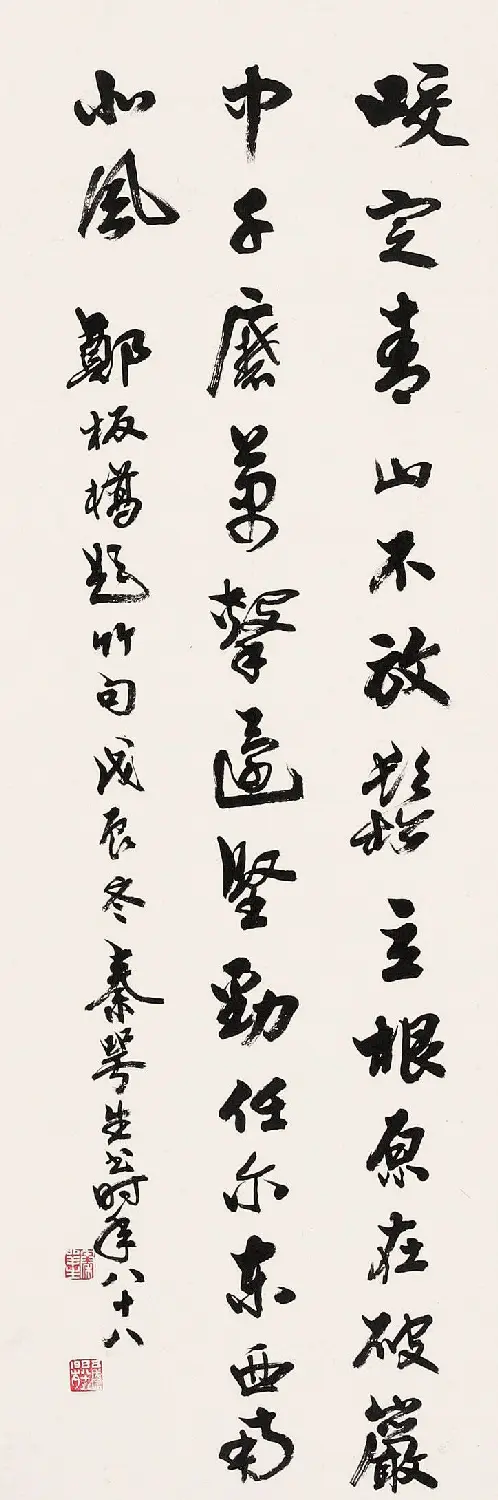 咬定青山不放鬆立根原在破巖
中千磨萬擊還堅勁任尔东西南
北風 鄭板橋題竹句戊辰冬秦咢生书时年八十八